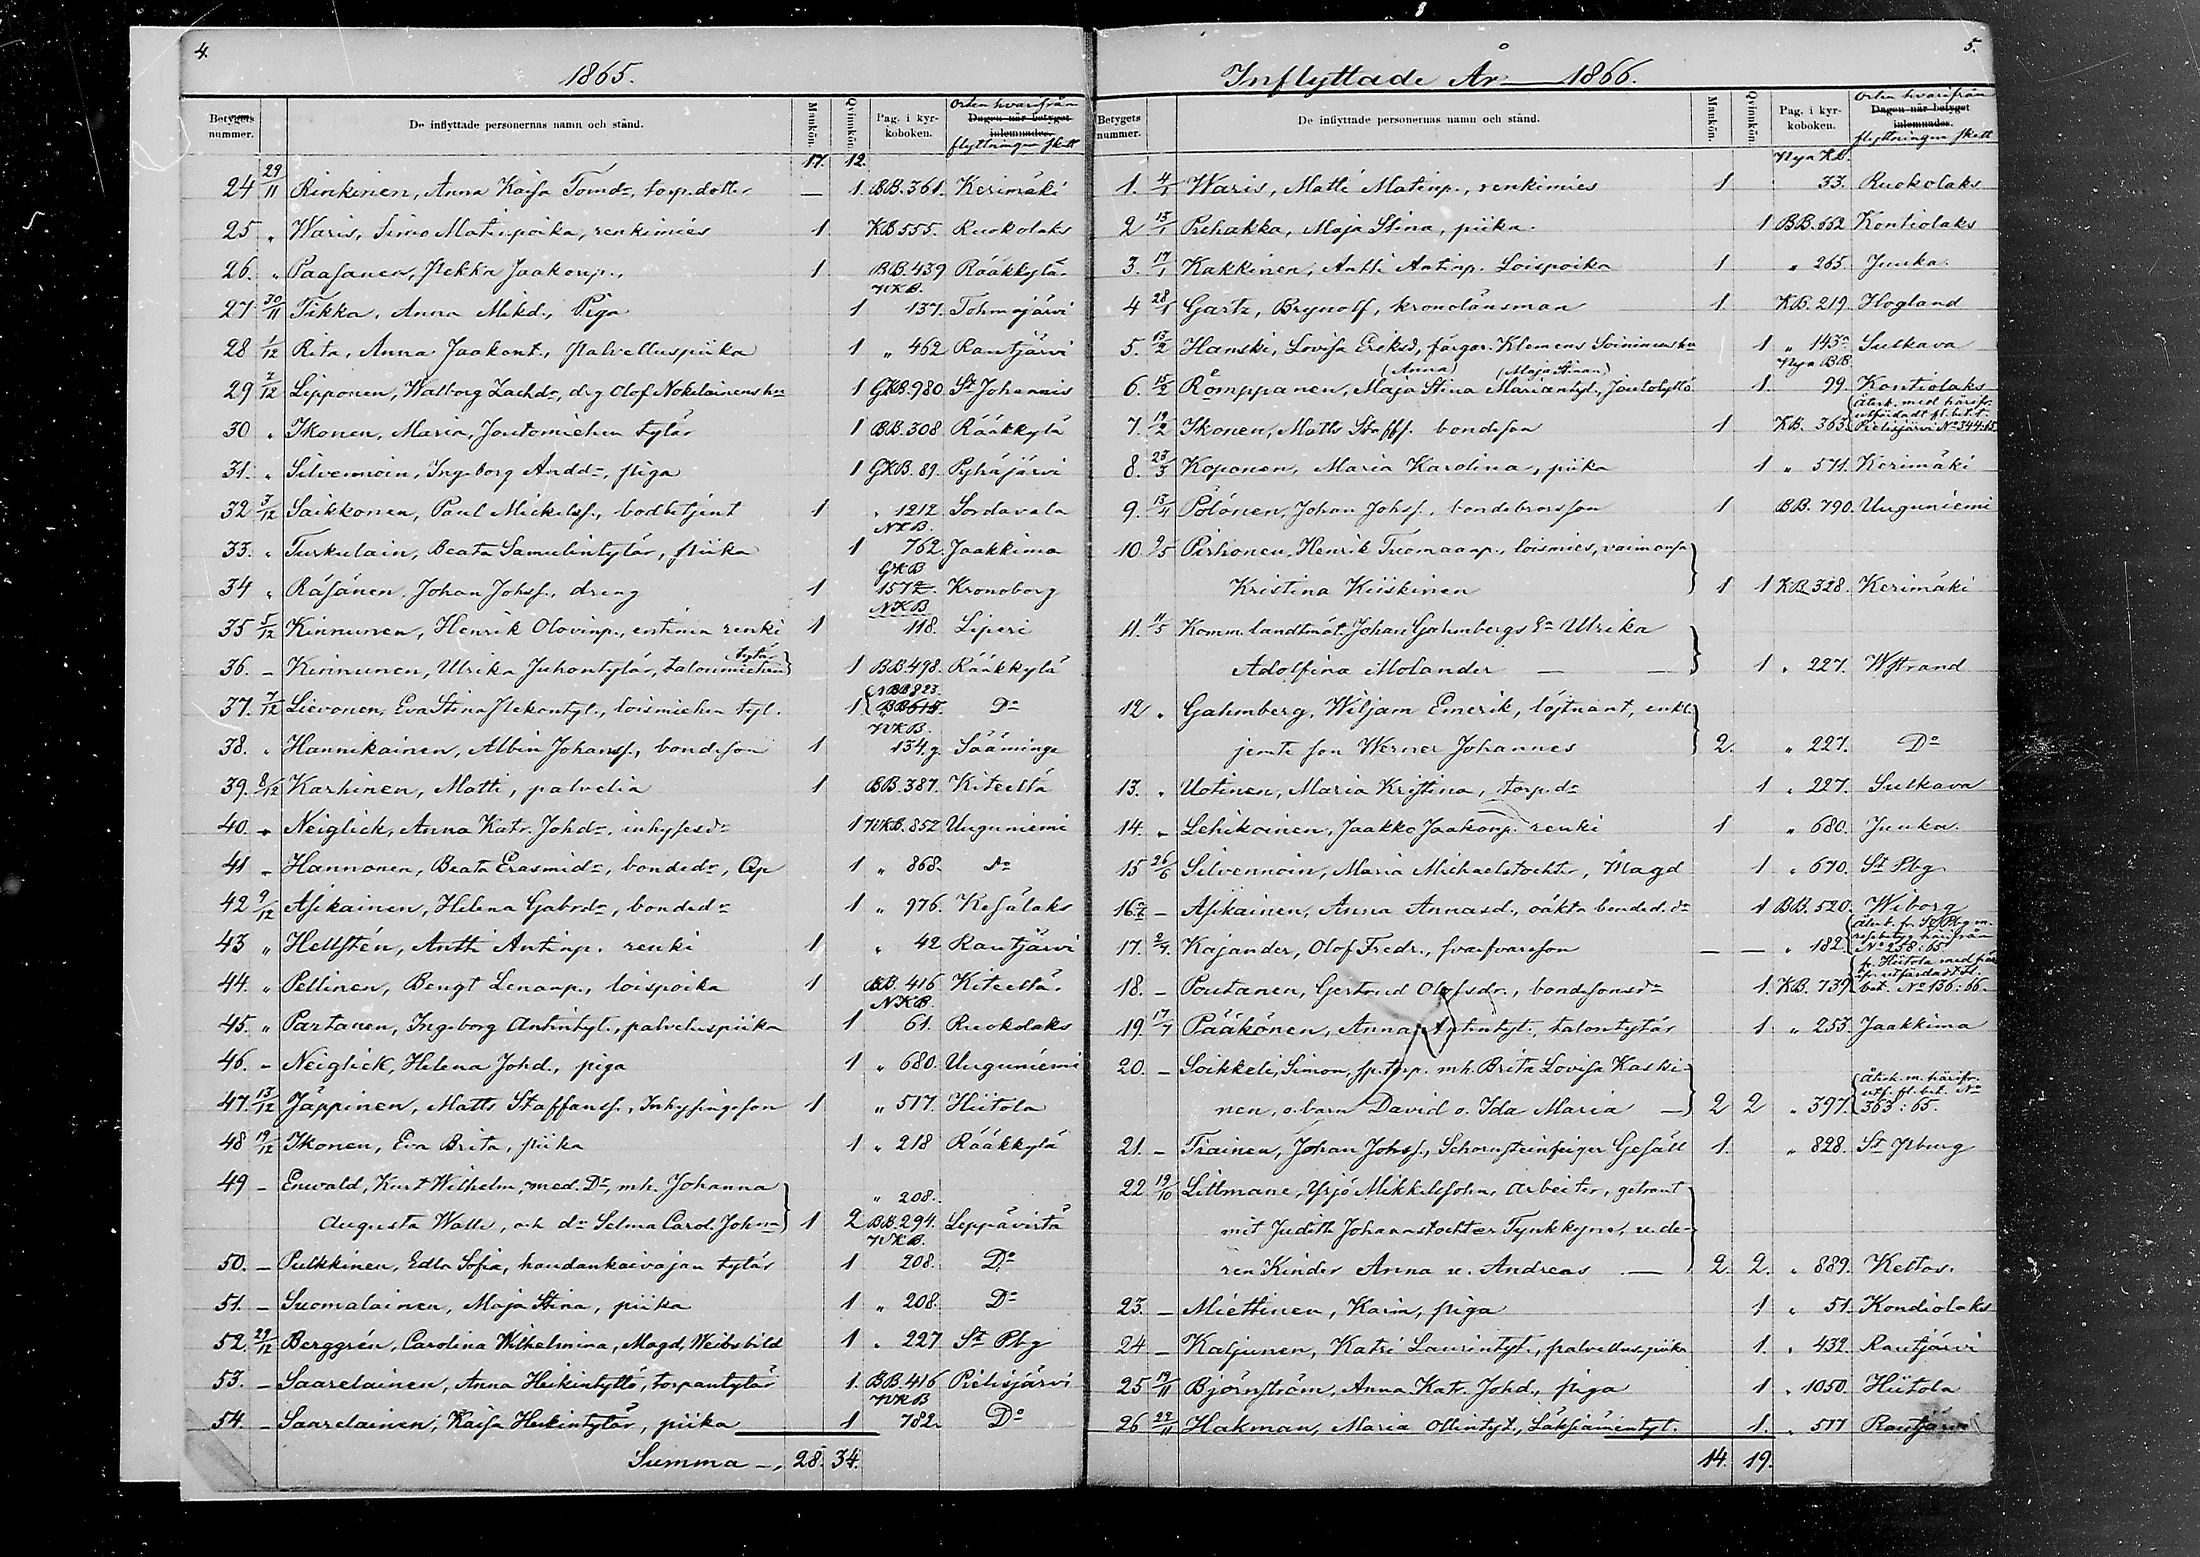 4.
1865.
Betygets nummer. De inflyttade personernas namn och stånd. Mankön. Qvinnkön. Pag. i kyrkoboken. Orten hvarifrån flyttningen skett
Dagen när betyget inlemnades.
17. 12.
24 29/11 Rinkinen, Anna Kaisa Tomdr, torp.dotter — 1. BB.361. Kerimäki
25 " Waris, Simo Matinpoika, renkimies 1 KB 555. Ruokolaks
26. " Paasanen, Pekka Jaakonp., 1 BB.439 Rääkkylä
27 30/11 Tikka, Anna Mikd., Piga 1 NKB. 137. Tohmajärvi
28 1/12 Rita, Anna Jaakont., palvelluspiika 1 " 462 Rautjärvi
29 2/12 Lipponen, Walborg Zachdr, drg Olof Nokelainens hu 1 GKB.980 St Johannis
30 " Ikonen, Maria, Joutomiehen tytär 1 BB.308 Rääkkylä
31. " Silvennoin, Ingeborg Anddr, piga 1 GKB. 89. Pyhäjärvi
32 3/12 Saikkonen, Paul Mickelss., bodbetjent 1 " 1212 Sordavala
33. " Turkulain, Beata Samulintytär, piika 1 NKB. 762. Jaakkima
34 " Räsänen, Johan Johss., dreng 1 GKB 1572. Kronoborg
35 5/12 Kinnunen, Henrik Olovinp., entinen renki 1 NKB 118. Liperi
36. – Kinnunen, Ulrika Juhontytär, talonmiehen tytär 1 BB.498. Rääkkylä
37. 7/12 Lievonen, Eva Stina Pekontyt., loismiehen tyt. 1 NBB 823. BB 615. Do
38. " Hannikainen, Albin Johanss., bondeson 1 NKB. 134.g. Sääminge
39. 8/12 Karhinen, Matti, palvelia 1 BB.387. Kiteeltä
40. " Neiglick, Anna Katr. Johdr, inhysesdr 1 NKB. 852 Uuguniemi
41 " Hannonen, Beata Erasmidr, bondedr, Qp 1 " 868. Do
42 9/12 Asikainen, Helena Gabrdr, bondedr 1 " 976. Kesälaks
43 " Hellstén, Antti Antinp. renki 1 " 42 Rautjärvi
44. " Pellinen, Bengt Lenanp., loispoika 1 BB. 416 Kiteeltä.
45. " Partanen, Ingeborg Antintyt., palveluspiika 1 NKB. 61. Ruokolaks
46. " Neiglick, Helena Johd., piga 1 " 680. Uuguniemi
47. 13/12 Jäppinen, Matts Staffanss., Inhysingeson 1 " 517. Hiitola
48 19/12 Ikonen, Eva Brita, piika 1 " 218 Rääkkylä
49 – Enwald, Kurt Wilhelm, med. Dr, mh. Johanna " 208.
Augusta Walle, och dr Selma Carol. Johna 1 2 BB.294. Leppävirta
50. – Pulkkinen, Edla Sofia, haudankaivajan tytär 1 NKB. 208. Do
51. – Suomalainen, Maja Stina, piika 1 " 208. Do
52 29/12 Berggrén, Carolina Wilhelmina, Magd, Weibsbild 1 " 227 St Pbg
53. – Saarelainen, Anna Heikintyttö, torpantytär 1. BB.416 Pielisjärvi
54. – Saarelainen, Kaisa Heikintytär, piika 1 NKB 782. Do
Summa –, 28. 34.
5.
Inflyttade År — 1866.
Betygets nummer. De inflyttade personernas namn och stånd. Mankön. Qvinnkön. Pag. i kyrkoboken. Orten hvarifrån flyttningen skett
Dagen när betyget inlemnades.
Nya KB.
1. 4/1 Waris, Matti Matinp., renkimies 1 33. Ruokolaks
2 15/1 Puhakka, Maja Stina, piika. 1 BB.662 Kontiolaks
3. 17/1 Kakkinen, Antti Antinp. Loispoika 1 " 265. Juuka.
4 28/1 Gartz, Brynolf, kronolänsman 1. KB. 219. Hogland
5. 13/2 Hanski, Lovisa Eriksd, färgar. Klemens Soininens hu 1 " 143a Sulkava
(Anna) (Maja Stinan) Nya BB.
6. 15/2 Romppanen, Maja Stina Mariantyt., Joutotyttö 1. 99. Kontiolaks
7. 19/2 Ikonen, Matts Staffs. bondeson 1 KB. 363. Återk. med härifr. utfärdadt fl. bet. t. Pielisjärvi No 344:65
8. 23/3 Koponen, Maria Karolina, piika 1 " 571. Kerimäki
9. 13/4 Pölönen, Johan Johss., bondebrorsson 1 BB. 790. Uuguniemi
10 2/5 Pirhonen, Henrik Tuomaanp., loismies, vaimonsa
Kristina Kiiskinen 1 1 KB 328. Kerimäki
11. 11/5 Komm. landtmät. Johan Gahmbergs Ea Ulrika
Adolfina Molander — — 1 " 227. Wstrand
12 " Gahmberg, Wiljam Emerik, löjtnant, enkl.
jemte son Werner Johannes 2. " 227. Do
13. " Uotinen, Maria Kristina, torp.dr 1 " 227. Sulkava
14. " Lehikoinen, Jaakko Jaakonp. renki 1 " 680. Juuka.
15 26/6 Silvennoin, Maria Michaelstochter, Magd 1 " 670. St Pbg
16 – Asikainen, Anna Annasd., oäkta bonded. dr 1 BB. 520. Wiborg
17. 2/7. Kajander, Olof Fredr., svarfvareson — — " 182 Återk. fr. St Pbg m. respbetyg härifrån No 258:65
18. – Poutanen, Gertrud Olofsdr., bondesonsdr 1. KB. 739 fr. Hiitola med härifr. utfärdadt fl. bet. No 136:66.
19. 17/7 Pääkönen, Anna Antintyt. talontytär 1 " 253. Jaakkima
20. – Soikkeli, Simon, sp.torp. mh. Brita Lovisa Kaski-
nen, o. barn David o. Ida Maria — 2 2 " 397. Återk. m. härifr. utf. fl. bet. No 363:65.
21. – Tiainen, Johan Johss., Schornsteinfeiger Gesäll 1. " 828. St Pburg
22. 19/10 Littmane, Yrjö Mikkelssohn, Arbeiter, getraut
mit Judith Johannstochter Tynkkyne, u. de-
ren Kinder Anna u. Andreas — 2. 2. " 889. Keltos.
23. – Miettinen, Karin, piga 1 " 51. Kondiolaks
24 – Kaljunen, Katri Laurintyt., palvelluspiika 1. " 432. Rautjärvi
25 19/11 Björnström, Anna Katr. Johd., piga 1 " 1050. Hiitola
26 22/11 Hakman, Maria Ollintyt., Läksiämentyt. 1. " 517 Rautjärvi
14. 19.